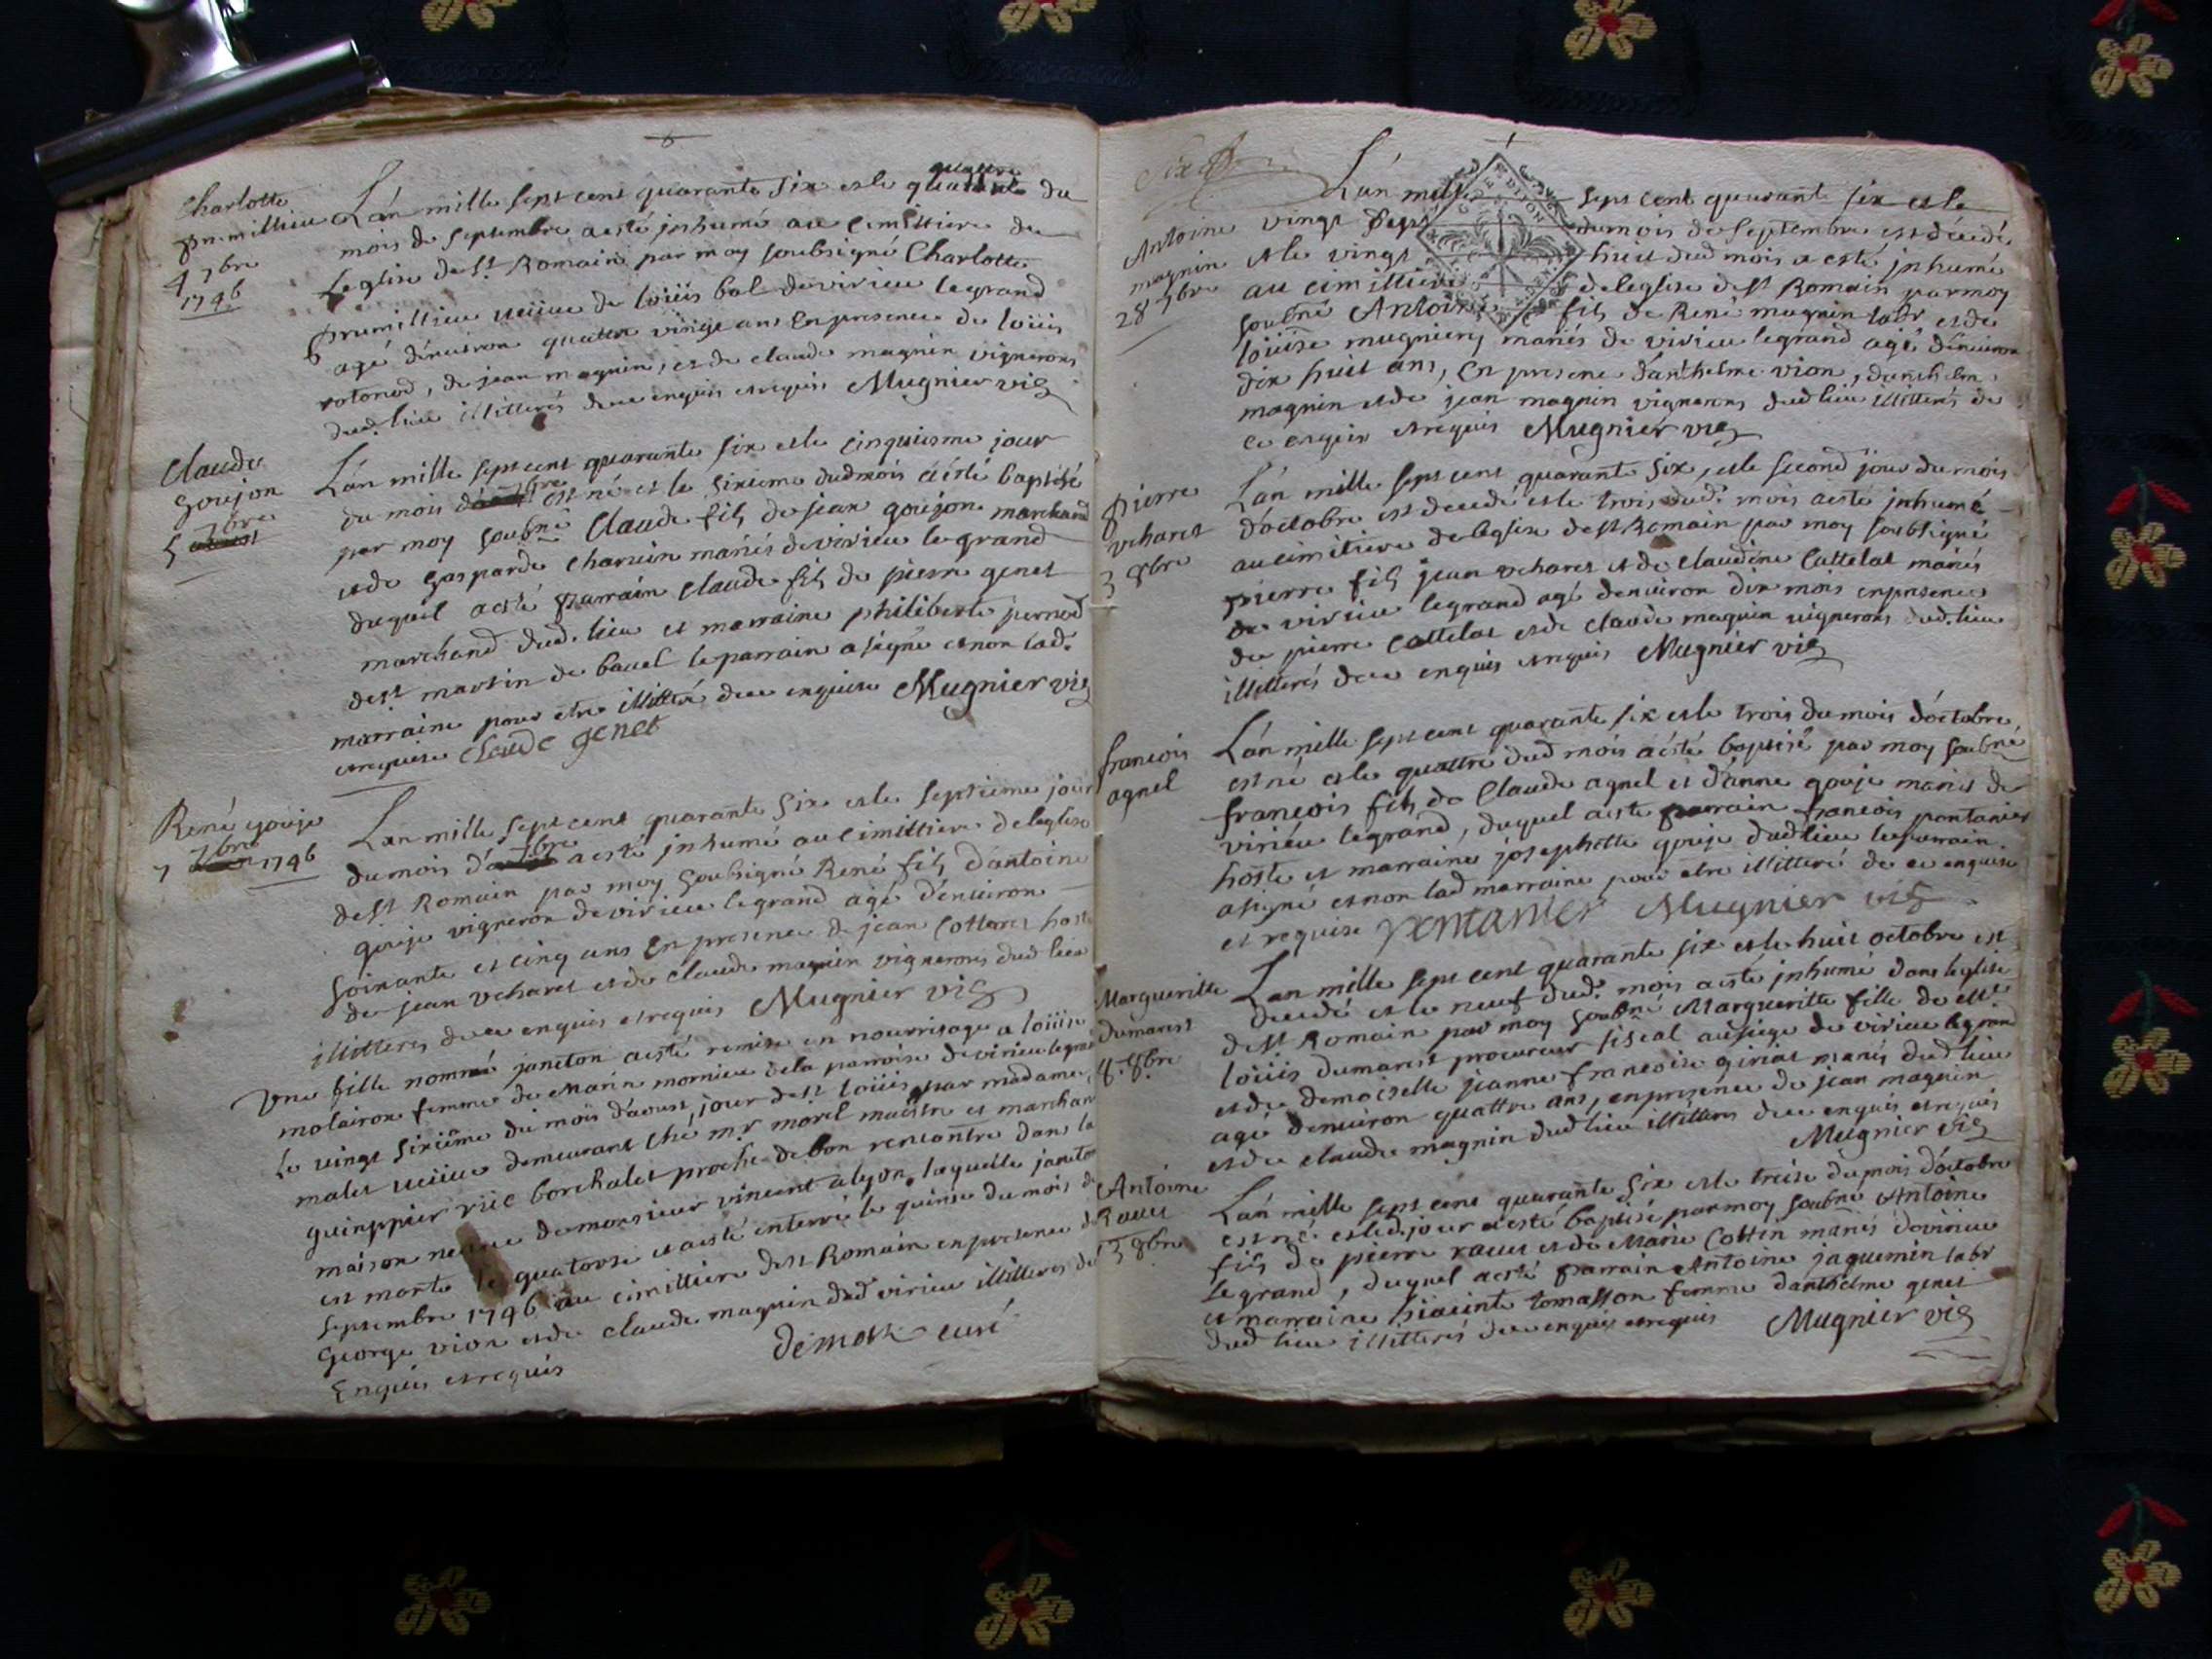 Charlotte
prumillieu
4 7bre
1746
L'an mille sept cent quarante six et le quattre du
mois de septembre a esté inhumé au cimittiere de
l'eglise de st Romain par moy soubsigné Charlotte
prumillieu veüve de loüis bal de virieu legrand
agé d'environ quatre vingt ans en presence de loüis
rotonod, de jean magnin, et de claude magnin vignerons
dud. lieu illitterés de ce enquis et requis Mugnier vic
Claude
goujon
7bre
5
L'an mille sept cent quarante six et le cinquiesme jour
du mois de 7bre est né et le sixieme dud mois a esté baptisé
par moy soubné Claude fils de jean goujon marchand
et de gasparde charvin mariés de virieu le grand
duquel a esté parrain claude fils de pierre genet
marchand dud. lieu et marraine philiberte pernod
de st martin de bavel le parrain a signé et non lad.
marraine pour etre illitteré de ce enquise Mugnier vic
et requise Claude genet
René gouje
7bre
7 1746
L'an mille sept cent quarante six et le septieme jour
du mois de 7bre a esté inhumé au cimittiere de leglise
de st Romain par moy soubsigné René fils d'antoine
gouje vigneron de virieu legrand agé d'environ
soixante et cinq ans en presence de jean Cottaret hoste
de jean vcharet et de claude magnin vignerons dud lieu
illitteres de ce enquis et requis Mugnier vic
Une fille nommé janeton a esté remise en nourrisage a loüise
molairon femme de Marin mornieu de la parroise de virieu legrand
le vingt sixiême du mois d'aoust, jour de st loüis, par madame
malet veüve demeurant ché mr morel maistre et marchan
guimppier rüe borchalet proche de bon rencontre dans la
maison neuve de monsieur vincent a lyon, laquelle janeton
est morte le quatorse et a esté enterré le quinse du mois de
septembre 1746 au cimittiere de st Romain en presence de
george vion et de claude magnin dud virieu illitteres de
enquis et requis
demost curé
six
Antoine
magnin
28 7bre
L'an mille sept cent quarante six et le
vingt sept du mois de septembre est décedé
et le vingt huit dud mois a esté inhumé
au cimittiere de leglise de st Romain par moy
soubné Antoine fils de René magnin labr et de
loüise mugniery mariés de virieu legrand agé d'environ
dix huit ans, en presence d'anthelme vion, d'anthelm
magnin et de jean magnin vignerons dud lieu illitterés de
ce enquis et requis Mugnier vic
pierre
vcharet
3 8bre
L'an mille sept cent quarante six, et le second jour du mois
d'octobre est decedé et le trois dud. mois a esté inhumé
au cimitiere de leglise de st Romain par moy soubsigné
pierre fils jean vcharet et de claudine Cattelat mariés
de virieu legrand agé denviron dix mois en presence
de pierre Cattelat et de claude magnin vignerons dud. lieu
illitterés de ce enquis et requis Mugnier vic
francois
agnel
L'an mille sept cent quarante six et le trois du mois d'octobre
est né et le quattre dud mois a esté baptisé par moy soubné
françois fils de Claude agnel et d'anne gouje mariés de
virieu legrand, duquel a esté parrain francois pantanier
hoste et marraine josephette gouje dud lieu le parrain
a signé et non lad marraine pour etre illitteré de ce enquise
et requise pantanier Mugnier vic
Margueritte
dumarest
8. 8bre
L'an mille sept cent quarante six et le huit octobre est
decedé et le neuf dud. mois a esté inhumé dans leglise
de st Romain par moy soubné Margueritte fille de
loüis dumarest procureur fiscal au siege de virieu legrand
et de demoiselle jeanne francoise giriat mariés dud lieu
agé denviron quattre ans, en presence de jean magnin
et de claude magnin dud lieu illitteres de ce enquis et requis
Mugnier vic
Antoine
Ravet
13 8bre
L'an mille sept cent quarante six et le treise du mois d'octobre
est né et led. jour a esté baptisé par moy soubné Antoine
fils de pierre ravet et de Marie Cottin mariés de virieu
le grand, duquel a esté parrain Antoine jaquemin labr
et marraine hiacinte tomasson femme d'anthelme genet
dud lieu illitterés de ce enquis et requis Mugnier vic